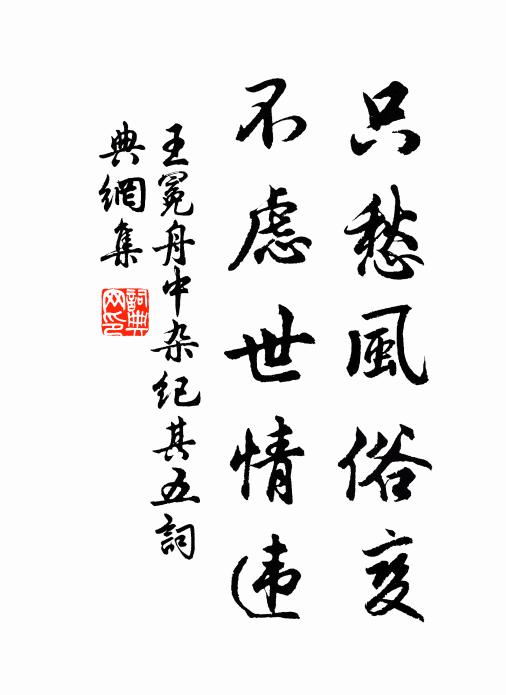 只愁風俗变
不慮世情违
王冕舟中杂纪其五詞
典網集
詞典网印